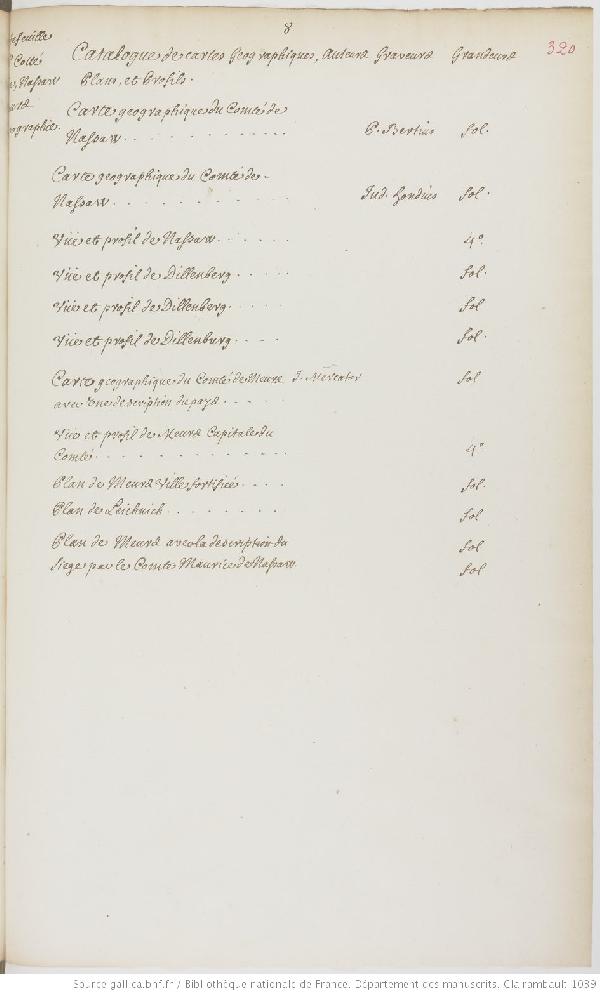 8
320
Catalogue de cartes Geographiques, Auteurs Graveurs Grandeurs
Plans, et Profils.
Carte geographique du Comté de
Nassaw . . . . . . . . . . P. Bertius fol.
Carte geographique du Comté de
Nassaw . . . . . . . . . . Jud. hondius fol.
Vüe et profil de Nassaw . . . . . 4°
Vüe et profil de Dillenberg . . . . fol.
Vüe et profil de Dillenberg . . . . fol
Vüe et profil de Dillenburg . . . . fol.
Carte geographique du Comté de Meurs J. Mercator fol
avec une description du pays . . . .
Vüe et profil de Meurs Capitale du
Comté . . . . . . . . . . 4°
Plan de Meurs Ville fortifiée . . . . fol.
Plan de . . . . . . . fol
Plan de Meurs avec la description du fol
siege par le Comte Maurice de Nassaw fol
Source gallica.bnf.fr / Bibliothèque nationale de France. Département des manuscrits. Clairambault 1039